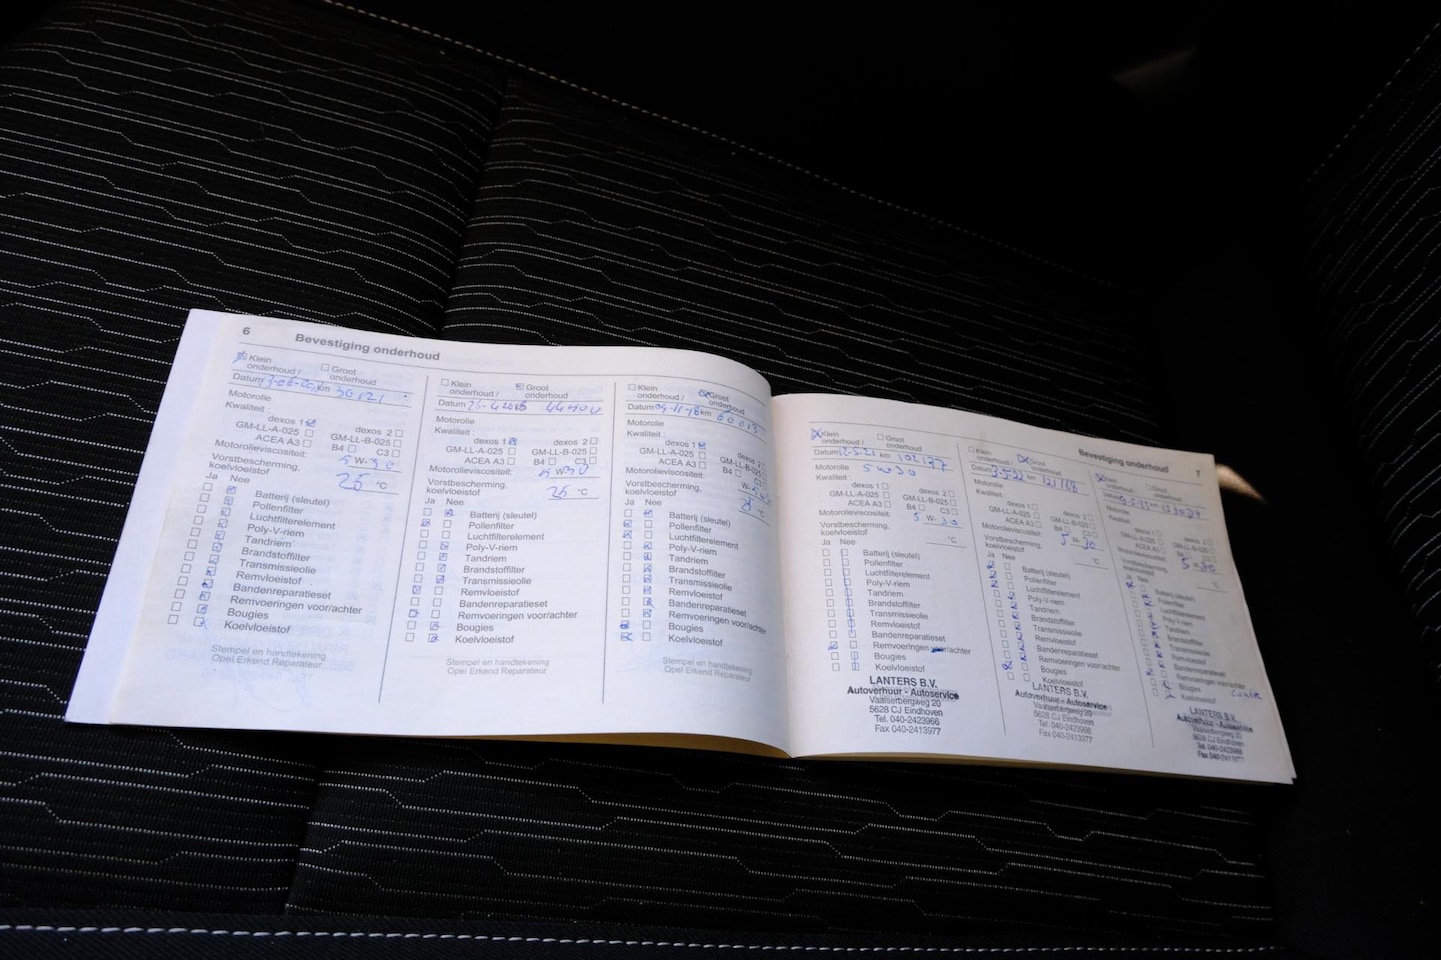 6
Bevestiging onderhoud
Klein onderhoud /
Groot onderhoud
Datum km 30121
Motorolie
Kwaliteit :
dexos 1 dexos 2
GM-LL-A-025 GM-LL-B-025
ACEA A3 B4 C3
Motorolieviscositeit: 5 W-30
Vorstbescherming, koelvloeistof 25 °C
Ja Nee
Batterij (sleutel)
Pollenfilter
Luchtfilterelement
Poly-V-riem
Tandriem
Brandstoffilter
Transmissieolie
Remvloeistof
Bandenreparatieset
Remvoeringen voor/achter
Bougies
Koelvloeistof
Stempel en handtekening
Opel Erkend Reparateur
Klein onderhoud /
Groot onderhoud
Datum
Motorolie
Kwaliteit :
dexos 1 dexos 2
GM-LL-A-025 GM-LL-B-025
ACEA A3 B4 C3
Motorolieviscositeit: 5 W30
Vorstbescherming, koelvloeistof 25 °C
Ja Nee
Batterij (sleutel)
Pollenfilter
Luchtfilterelement
Poly-V-riem
Tandriem
Brandstoffilter
Transmissieolie
Remvloeistof
Bandenreparatieset
Remvoeringen voor/achter
Bougies
Koelvloeistof
Stempel en handtekening
Opel Erkend Reparateur
Klein onderhoud /
Groot onderhoud
Datum km 60013
Motorolie
Kwaliteit :
dexos 1 dexos 2
GM-LL-A-025 GM-LL-B-025
ACEA A3 B4 C3
Motorolieviscositeit:
Vorstbescherming, koelvloeistof °C
Ja Nee
Batterij (sleutel)
Pollenfilter
Luchtfilterelement
Poly-V-riem
Tandriem
Brandstoffilter
Transmissieolie
Remvloeistof
Bandenreparatieset
Remvoeringen voor/achter
Bougies
Koelvloeistof
Stempel en handtekening
Opel Erkend Reparateur
Bevestiging onderhoud
7
Klein onderhoud /
Groot onderhoud
Datum km 102177
Motorolie 5W30
Kwaliteit :
dexos 1 dexos 2
GM-LL-A-025 GM-LL-B-025
ACEA A3 B4 C3
Motorolieviscositeit: 5 W-30
Vorstbescherming, koelvloeistof °C
Ja Nee
Batterij (sleutel)
Pollenfilter
Luchtfilterelement
Poly-V-riem
Tandriem
Brandstoffilter
Transmissieolie
Remvloeistof
Bandenreparatieset
Remvoeringen voor/achter
Bougies
Koelvloeistof
LANTERS B.V.
Autoverhuur - Autoservice
Vaalserbergweg 20
5628 CJ Eindhoven
Tel. 040-2423966
Fax 040-2413977
Klein onderhoud /
Groot onderhoud
Datum 3-5-22 km 121768
Motorolie
Kwaliteit
dexos 1 dexos 2
GM-LL-A-025 GM-LL-B-025
ACEA A3 B4 C3
Motorolieviscositeit: 5 W-30
Vorstbescherming, koelvloeistof °C
Ja Nee
Batterij (sleutel)
Pollenfilter
Luchtfilterelement
Poly-V-riem
Tandriem
Brandstoffilter
Transmissieolie
Remvloeistof
Bandenreparatieset
Remvoeringen voor/achter
Bougies
Koelvloeistof
LANTERS B.V.
Autoverhuur - Autoservice
Vaalserbergweg 20
5628 CJ Eindhoven
Tel. 040-2423966
Fax 040-2413977
Klein onderhoud /
Groot onderhoud
Datum
Motorolie
Kwaliteit
dexos 1
GM-LL-A-025 GM-LL-B-025
ACEA A3
Motorolieviscositeit: 5-30
Vorstbescherming, koelvloeistof °C
Nee
Batterij (sleutel)
Pollenfilter
Luchtfilterelement
Poly-V-riem
Tandriem
Brandstoffilter
Transmissieolie
Remvloeistof
Bandenreparatieset
Remvoeringen voor/achter
Bougies
Koelvloeistof
LANTERS B.V.
Autoverhuur - Autoservice
Vaalserbergweg 20
5628 CJ Eindhoven
Tel. 040-2423966
Fax 040-2413977